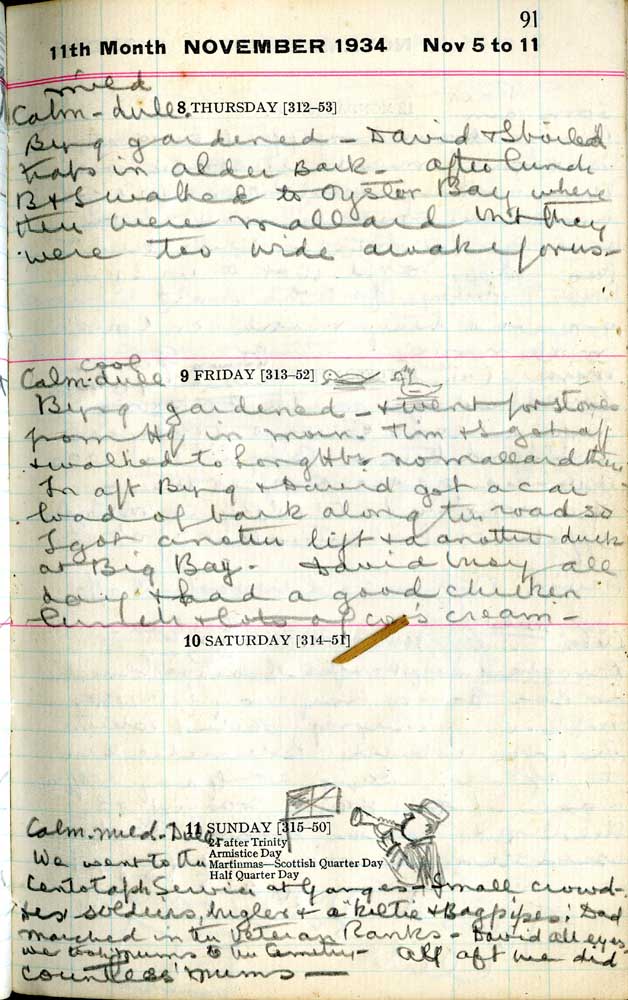 91
11th Month NOVEMBER 1934 Nov 5 to 11
mild
Calm - dull. 8 THURSDAY [312-53]
Byng gardened - David & I boiled
traps in alder Bark - after lunch
B & I walked to Oyster Bay where
there were mallard but they
were too wide awake for us -
cool
Calm - dull 9 FRIDAY [313-52]
Byng gardened - & went for stones
from in morn. Tim & I got off
& walked to Long Hbr no mallard there
In aft Byng & David got a car
load of bark along the road so
I got another lift & a another duck
at Big Bay - David busy all
day & had a good chicken
lunch & lots of ice cream -
10 SATURDAY [314-51]
Calm. mild. Dull 11 SUNDAY [315-50]
24 after Trinity
Armistice Day
Martinmas—Scottish Quarter Day
Half Quarter Day
We went to the
Centotaph Service at Ganges - Small crowd -
soldiers, bugler & a "Kiltie & Bagpipes". Dad
marched in the Veteran Ranks - David all eyes
we took mums to the Cemetry - All aft we did
countless 'mums —